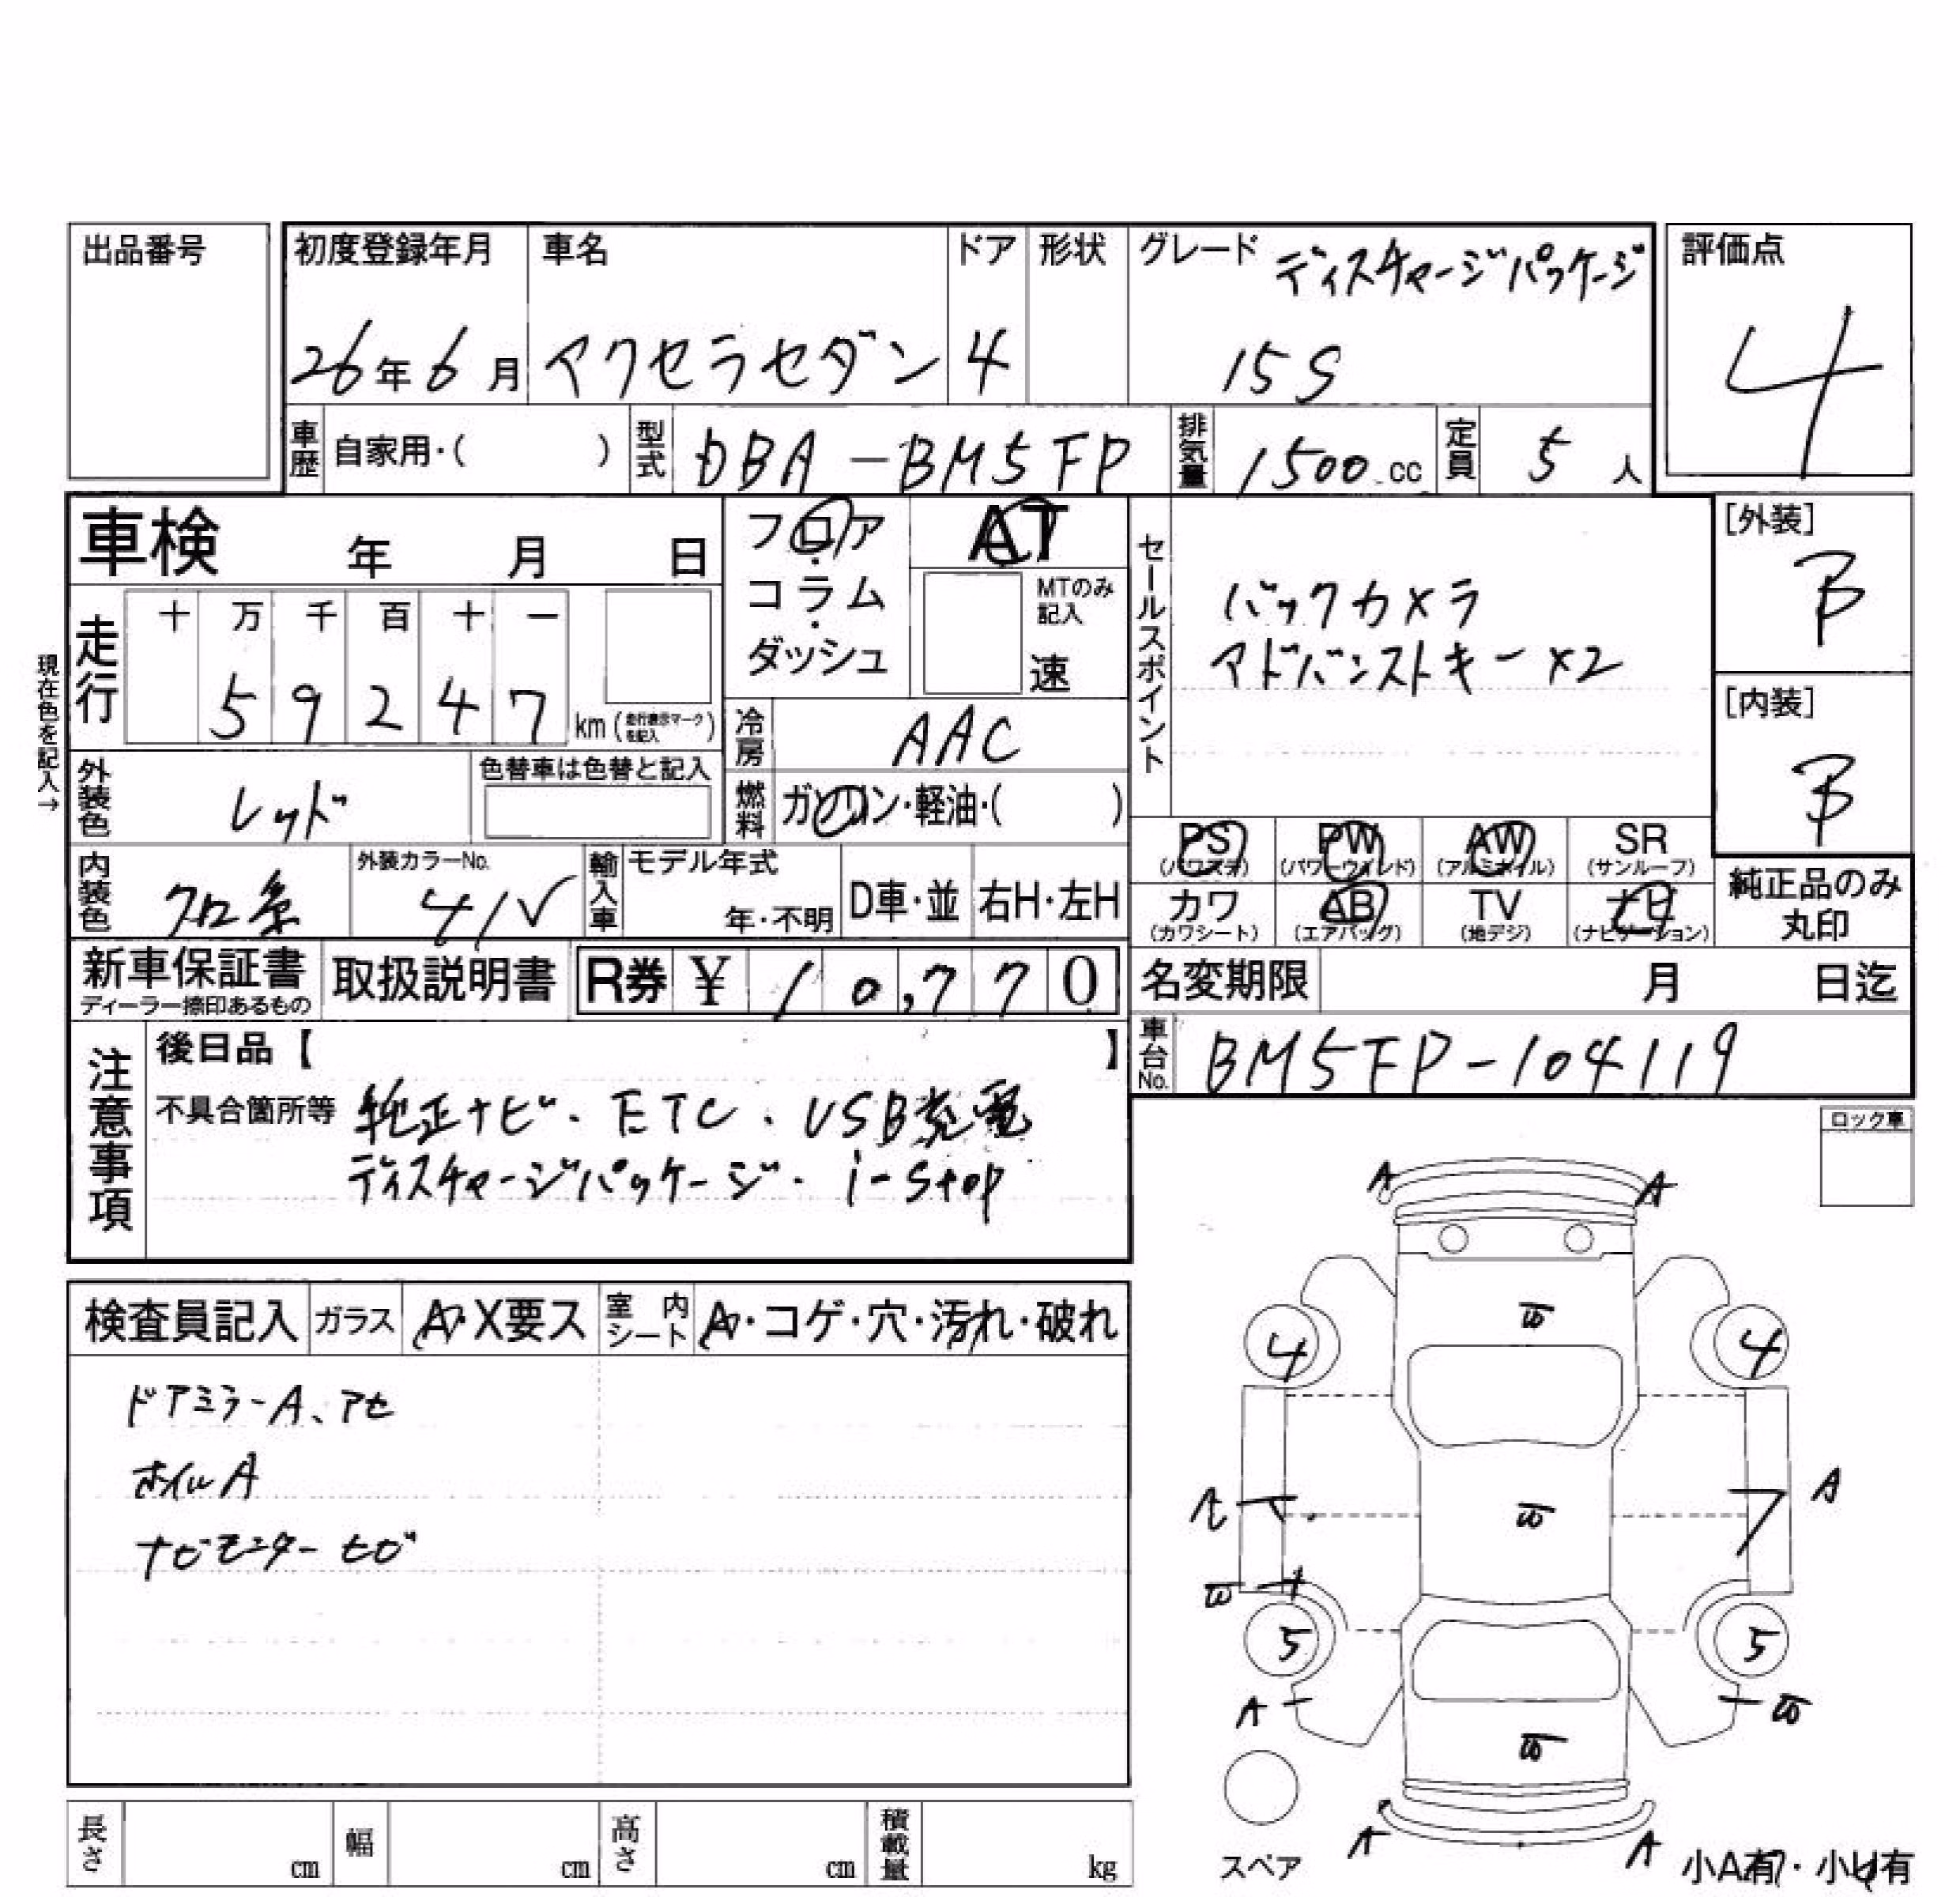 出品番号
初度登録年月
26年6月
車名
アクセラセダン
ドア
4
形状
グレード ディスチャージパッケージ
15S
評価点
4
車歴 自家用・( )
型式 DBA-BM5FP
排気量 1500.cc
定員 5人
車検 年 月 日
フロア・
コラム・
ダッシュ
AT
MTのみ記入
速
セールスポイント
バックカメラ
アドバンストキー×2
[外装]
B
[内装]
B
現在色を記入→
走行
十 万 千 百 十 一
5 9 2 4 7 km (走行表示マークを記入)
冷房 AAC
外装色 レッド
色替車は色替と記入
燃料 ガソリン・軽油・( )
PS (パワステ)
PW (パワーウィンド)
AW (アルミホイル)
SR (サンルーフ)
カワ (カワシート)
AB (エアバッグ)
TV (地デジ)
ナビ (ナビゲーション)
純正品のみ丸印
内装色 クロ系
外装カラーNo.
41V
輸入車
モデル年式
年・不明
D車・並
右H・左H
新車保証書
ディーラー捺印あるもの
取扱説明書
R券 ¥ 10,770
名変期限 月 日迄
車台No. BM5FP-104119
注意事項
後日品【 】
不具合箇所等 純正ナビ・ETC・USB充電
ディスチャージパッケージ・i-stop
ロック車
検査員記入
ガラス A・X要ス
室内シート A・コゲ・穴・汚れ・破れ
ドアミラーA、アセ
ホイルA
ナビモニターヒビ
A A
4 4
A
5 5
A
A A
スペア
小A有・小U有
長さ cm
幅 cm
高さ cm
積載量 kg